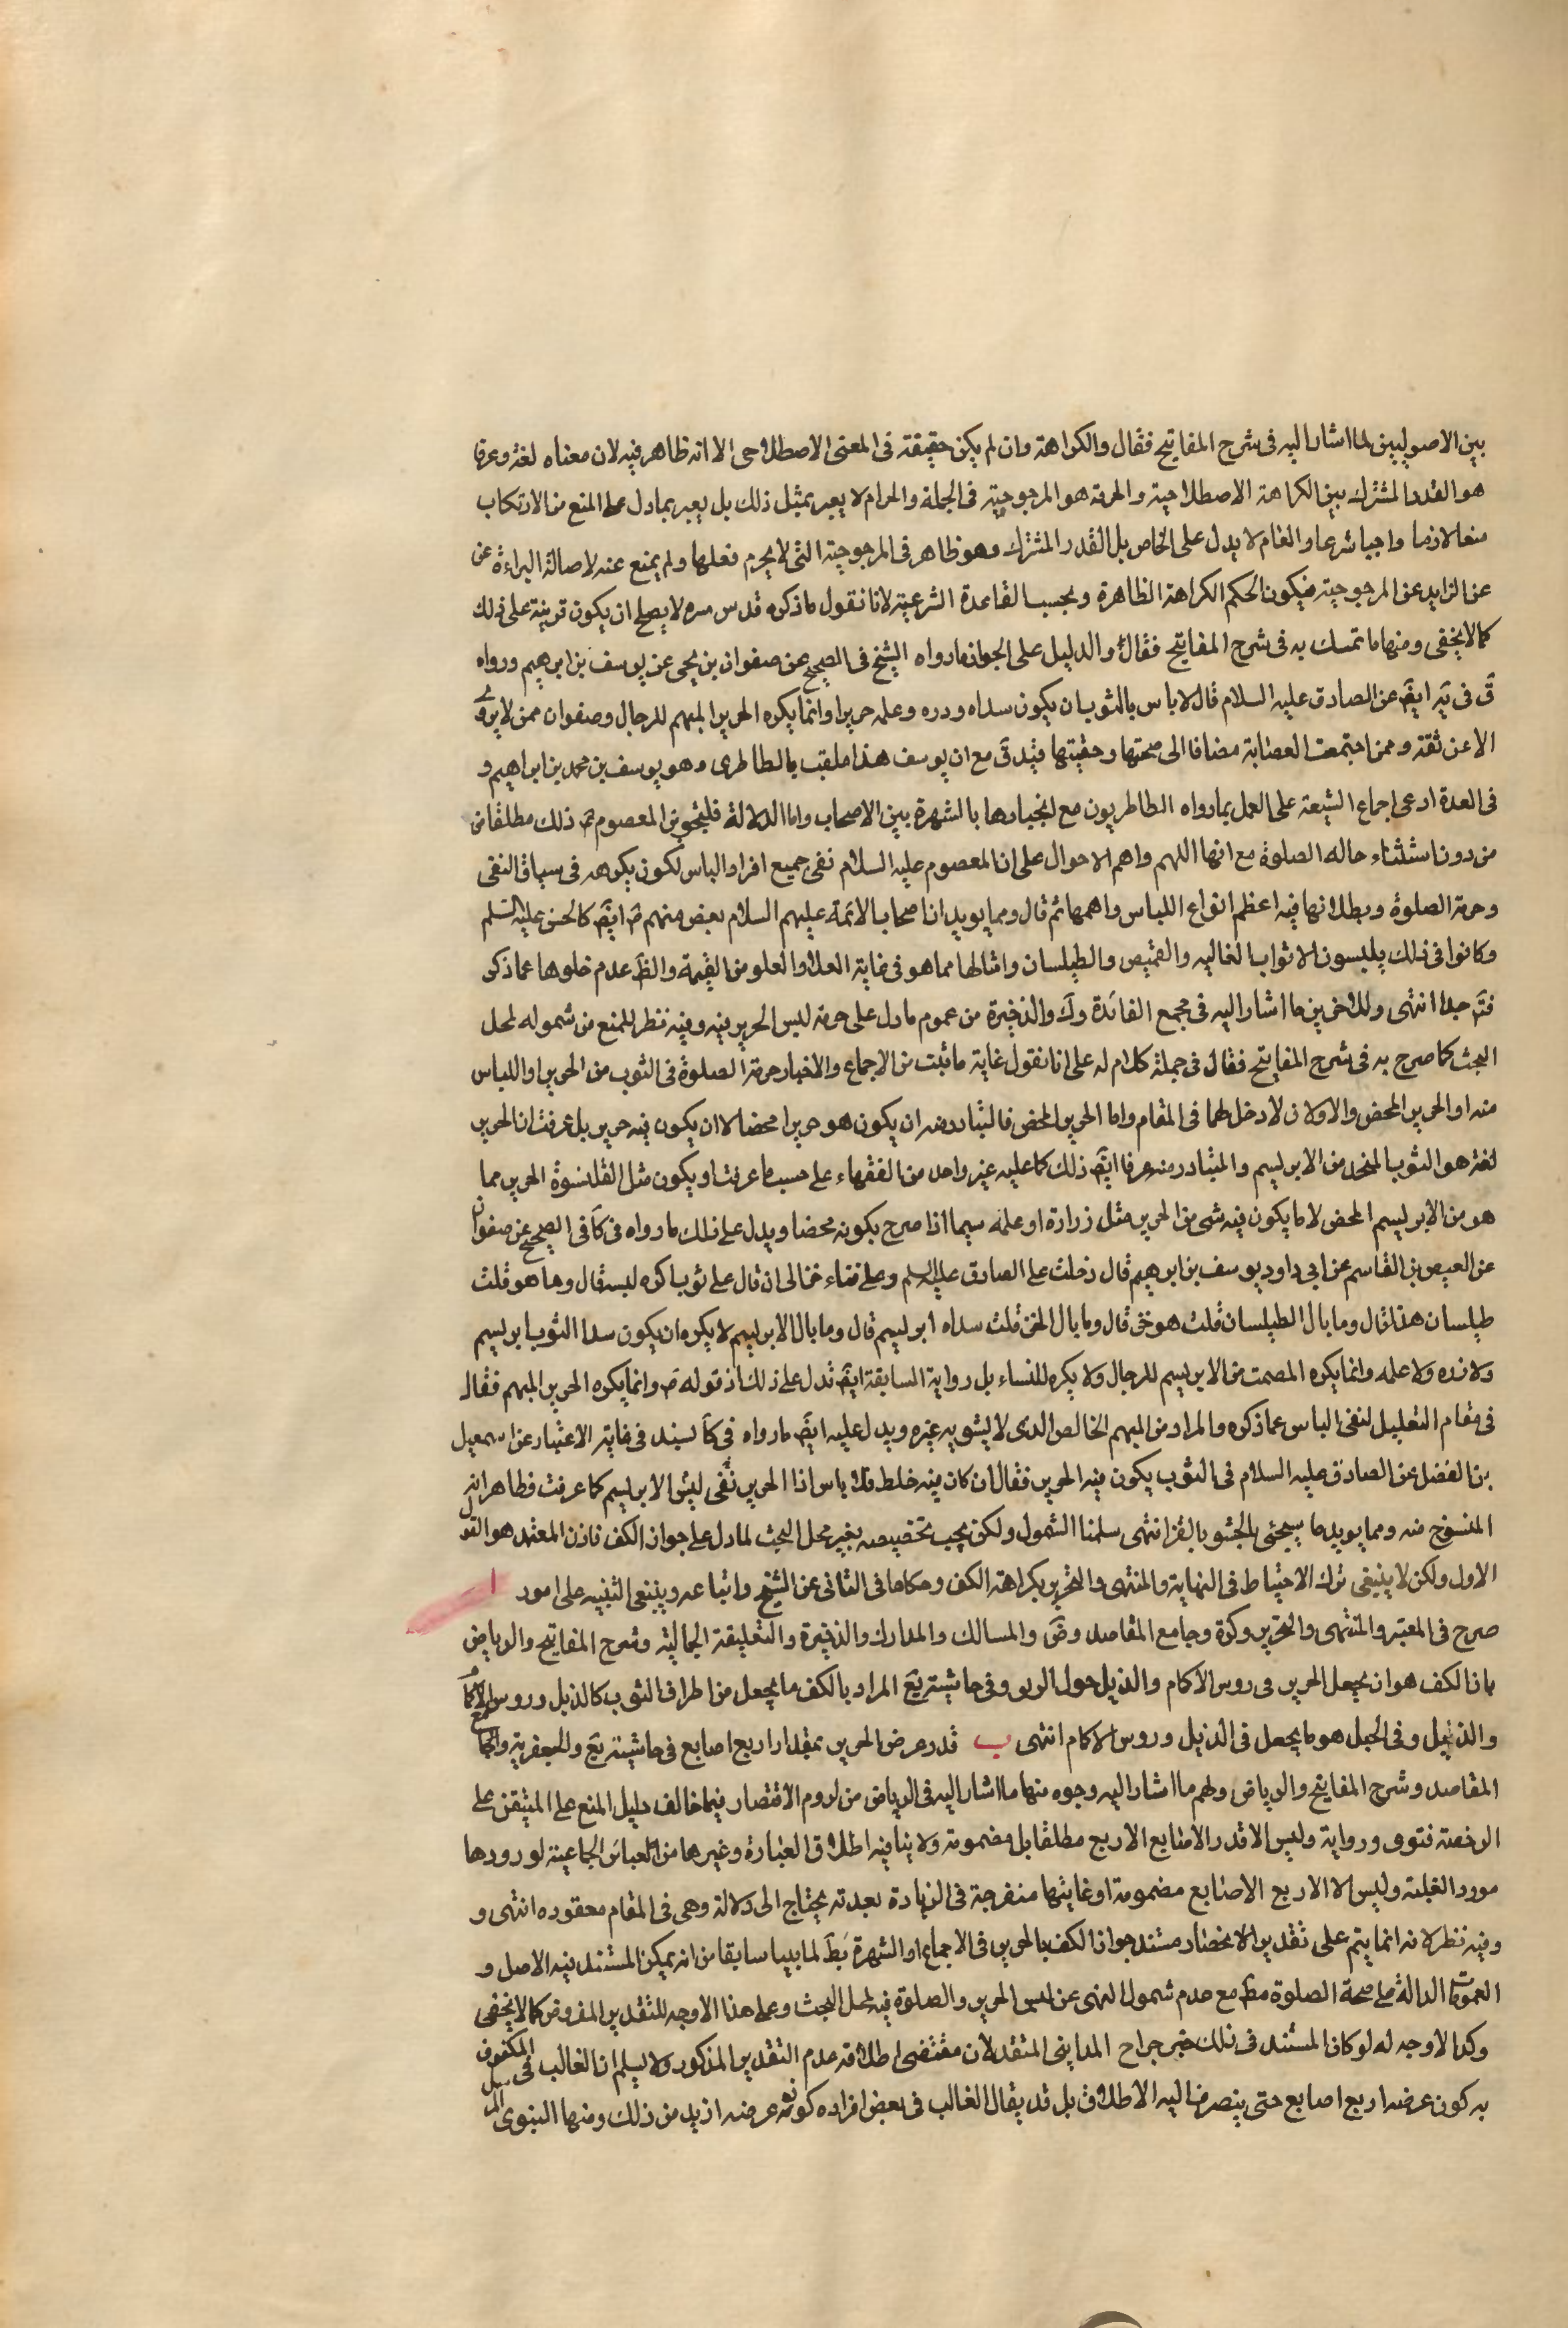 بين الاصوليين لما اشار اليه فى شرح المفاتيح فقال والكراهة وان لم يكن حقيقة فى المعنى الاصطلاحى الا انه ظاهر فيه لان معناه لغة وعرفا
هو القدر المشترك بين الكراهة الاصطلاحية والحرمة هو المرجوحية فى الجملة والحرام لا يعبر بمثل ذلك بل يعبر بما دل على المنع من الارتكاب
منعا لازما واجبا شرعا والعام لا يدل على الخاص بل القدر المشترك وهو ظاهر فى المرجوحية التى لا يحرم فعلها ولم يمنع عنه لاصالة البراءة عن
عن الزايد عن المرجوحية فيكون الحكم الكراهة الظاهرة وبحسب القاعدة الشرعية لانا نقول ما ذكره قدس سره لا يصلح ان يكون قرينة على ذلك
كما لا يخفى ومنها ما تمسك به فى شرح المفاتيح فقال والدليل على الجواز ما رواه الشيخ فى الصحيح عن صفوان بن يحيى عن يوسف بن ابرهيم ورواه
ق فى يه ايض عن الصادق عليه السلام قال لا باس بالثوب ان يكون سداه وزره وعلمه حريرا وانما يكره الحرير المبهم للرجال وصفوان ممن لا يروى
الا عن ثقة وممن اجتمعت العصابة مضافا الى صحتها وحقيتها فيه ق مع ان يوسف هذا ملقب بالطاطرى وهو يوسف بن محمد بن ابراهيم و
فى العدة ادعى اجماع الشيعة على العمل بما رواه الطاطريون مع انجبارها بالشهرة بين الاصحاب واما الدلالة فلتجويز المعصوم ع ذلك مطلقا من
من دون استثناء حاله الصلوة مع انها اللهم واهم الاحوال على ان المعصوم عليه السلام نفى جميع افراد الباس لكون يكره فى سياق النفى
وحرمة الصلوة وبطلانها فيه اعظم انواع اللباس واهمها ثم قال ومما يويد ان اصحاب الائمة عليهم السلام بعض منهم ايض كالحسن عليه السلم
وكانوا فى ذلك يلبسون الاثواب الغاليه والقميص والطيلسان وامثالها مما هو فى غاية العلا والعلو من القيمة والظ عدم خلوها عما ذكر
فتم جدا انتهى وللاخرين ما اشار اليه فى مجمع الفائدة وك والذخيرة من عموم ما دل على حرمة لبس الحرير فيه وفيه نظر للمنع من شموله لمحل
البحث كما صرح به فى شرح المفاتيح فقال فى جملة كلام له على انا نقول غاية ما ثبت من الاجماع والاخبار حرمة الصلوة فى الثوب من الحرير او اللباس
منه او الحرير المحض والاولان لا دخل لهما فى المقام واما الحرير المحض فالمتبادر منه ان يكون هو حريرا محضا لا ان يكون فيه حرير بل عرفت ان الحرير
لغة هو الثوب المتخذ من الابريسم والمتبادر منه عرفا ايض ذلك كما عليه غير واحد من الفقهاء على حسب ما عرفت او يكون مثل القلنسوة الحرير مما
هو من الابريسم المحض لا ما يكون فيه شى من الحرير مثل زراره او علمه سيما اذا صرح بكونه محضا ويدل على ذلك ما رواه فى كا فى الصحيح عن صفوان
عن العيص بن القاسم عن ابى داود يوسف بن ابرهيم قال دخلت على الصادق عليه السلم وعلى قباء خز الى ان قال على ثوب اكره لبسه قال وما هو قلت
طيلسان هذا قال وما بال الطيلسان قلت هو خز قال وما بال الخز قلت سداه ابريسم قال وما بال الابريسم لا يكره ان يكون سدا الثوب ابريسم
ولا زره ولا علمه وانما يكره المصمت من الابريسم للرجال ولا يكره للنساء بل رواية السابقة ايض تدل على ذلك اذ قوله ع وانما يكره الحرير المبهم فقال
فى مقام التعليل لنفى الباس عما ذكره والمراد من المبهم الخالص الذى لا يشوبه غيره ويدل عليه ايض ما رواه فى كا بسند فى غاية الاعتبار عن اسمعيل
بن الفضل عن الصادق عليه السلام فى الثوب يكون فيه الحرير فقال ان كان فيه خلط فلا باس اذا الحرير نفى ليس الابريسم كما عرفت فظاهر انه
المنسوج منه ومما يويد ما سيجئى المحشو بالقز انتهى سلمنا الشمول ولكن يجب تخصيصه بغير محل البحث لما دل على جواز الكف فاذن المعتمد هو القول
الاول ولكن لا ينبغى ترك الاحتياط فى النهاية والمنتهى والتحرير بكراهة الكف وحكاها فى الثانى عن الشيخ واتباعه وينبغى التنبيه على امور ا
صرح فى المعتبر والمنتهى والتحرير وكرة وجامع المقاصد وض والمسالك والمدارك والذخيرة والتعليقة الجمالية وشرح المفاتيح والرياض
بان الكف هو ان يجعل الحرير فى روس الاكمام والذيل حول الزيق وفى حاشية يع المراد بالكف ما يجعل من اطراف الثوب كالذيل وروس الاكمام
والذيل وفى الحبل هو ما يجعل فى الذيل وروس الاكمام انتهى ب قدر عرض الحرير بمقدار اربع اصابع فى حاشية يع والجعفرية وجامع
المقاصد وشرح المفاتيح والرياض ولهم ما اشار اليه وجوه منها ما اشار اليه فى الرياض من لزوم الاقتصار فيما خالف دليل المنع على المتيقن على
الرخصة فتوى ورواية وليس الا قدر الاصابع الاربع مطلقا بل مضمومة ولا ينافيه اطلاق العبارة وغيرها من العبائر الجماعية لورودها
مورد الغلبة وليس الا الاربع الاصابع مضمومة او غايتها منفرجة فى الزيادة بعدته يحتاج الى دلالة وهى فى المقام مفقوده انتهى و
وفيه نظر لانه انما يتم على تقدير الانحصار مستند جواز الكف بالحرير فى الاجماع او الشهرة بط لما بينا سابقا من انه يمكن المستند فيه الاصل و
العمومات الدالة على صحة الصلوة مط مع عدم شمول النهى عن لبس الحرير والصلوة فيه لمحل البحث وعلى هذا الاوجه للتقدير المفروض كما لا يخفى
وكذا لا وجه له لو كان المستند فى ذلك خبر جراح المداينى المتقد لان مقتضى اطلاقه عدم التقدير المذكور ولا يسلم ان الغالب فى المكفوف
به كون عرضه اربع اصابع حتى ينصرف اليه الاطلاق بل قد يقال الغالب فى بعض افراده كونه عرضه ازيد من ذلك ومنها النبوى